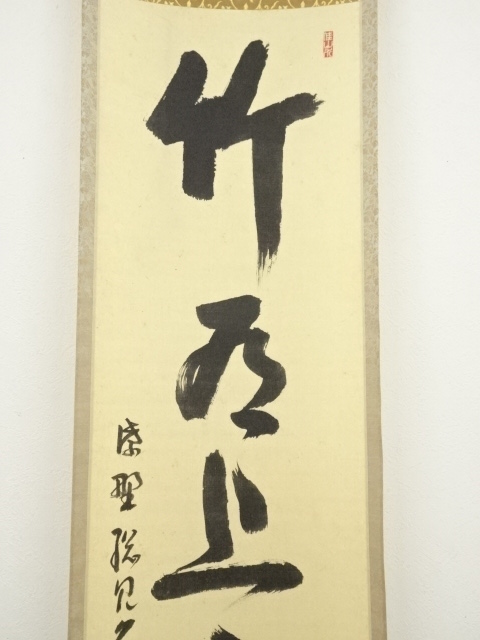 竹有上
紫野 聡見